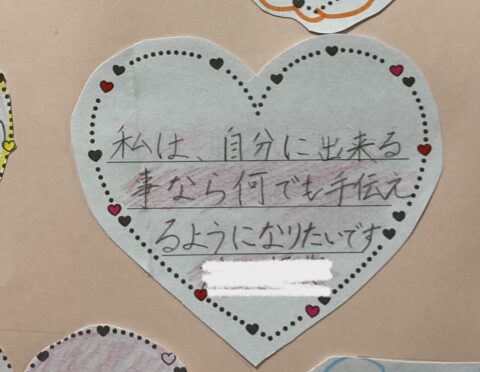 私は、自分に出来る
事なら何でも手伝え
るようになりたいです